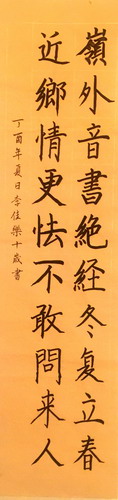 嶺外音書絕経冬复立春
近鄉情更怯不敢問来人
丁酉年夏日李佳樂十歲書